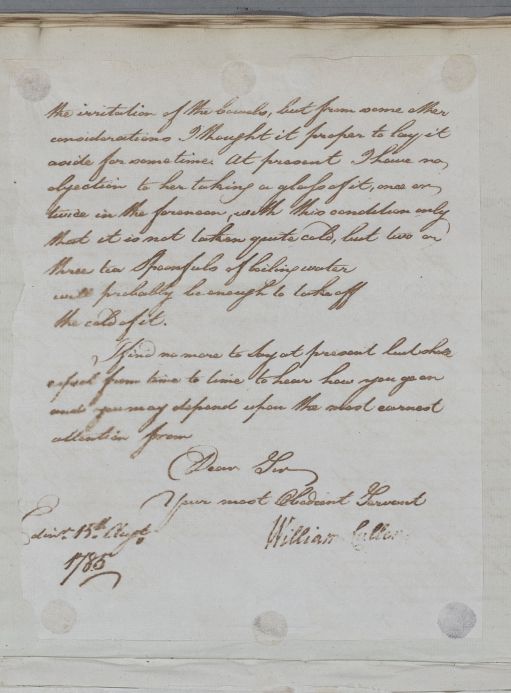 the irritation of the bowels, but from some other
considerations I thought it proper to lay it
aside for sometime. At present I have no
objection to her taking a glass of it, once or
twice in the forenoon, with this condition only
that it is not taken quite cold, but two or
three tea Spoonfuls of boiling water
will probably be enough to take off
the cold of it.
I find no more to Say at present but shall
expect from time to time to hear how you go on
and you may depend upon the most earnest
attention from
Dear Sir
Your most Obedient Servant
William Cullen
Edinr. 15th. Augt.
1785